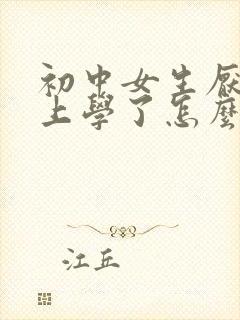 初中女生厭
上學了怎麼
江丘